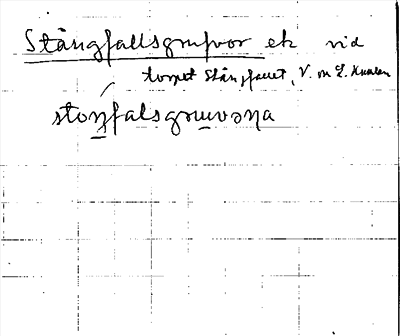 Stångfallsgruvor etc vid
torpet Stångfallet, V. om L. Kvarn
stoŋfalsgruvəna